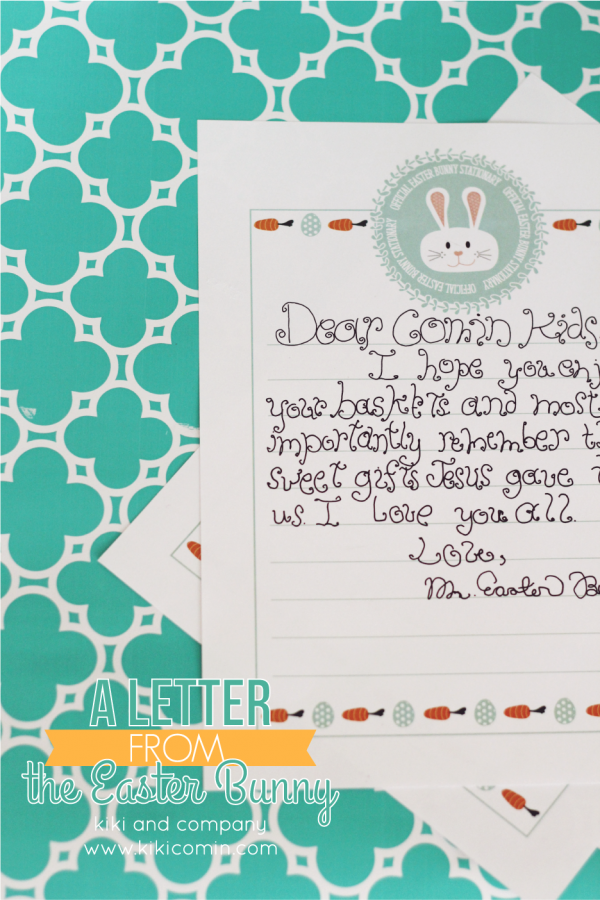 OFFICIAL EASTER BUNNY STATIONARY OFFICIAL EASTER BUNNY STATIONARY OFFICIAL EASTER BUNNY STATIONARY
Dear Comin Kids
I hope you enj
your baskets and most
importantly remember t
sweet gifts Jesus gave
us. I love you all.
Love,
Mr. Easter B
A LETTER
FROM
the Easter Bunny
kiki and company
www.kikicomin.com